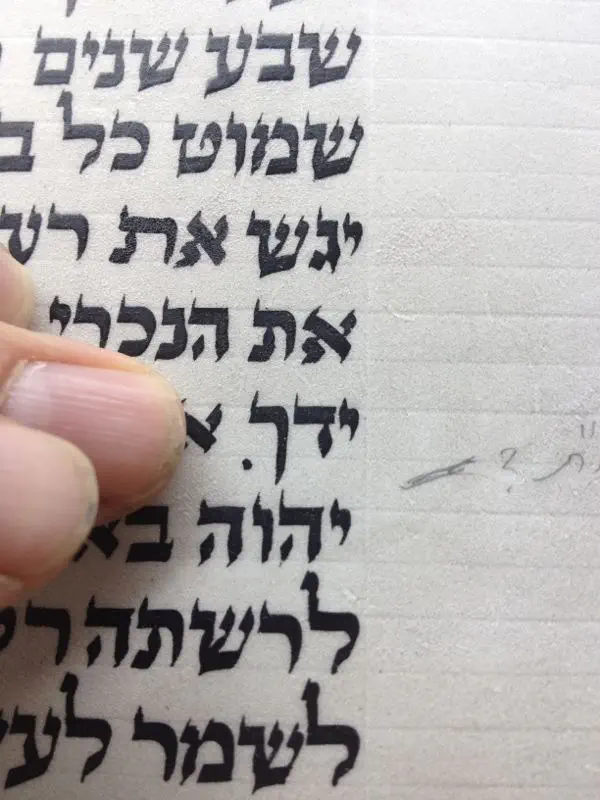 שבע שנים
שמוט כל ב
יגש את רע
את הנכרי
ידך. א
יהוה בא
לרשתה ר
לשמר לע